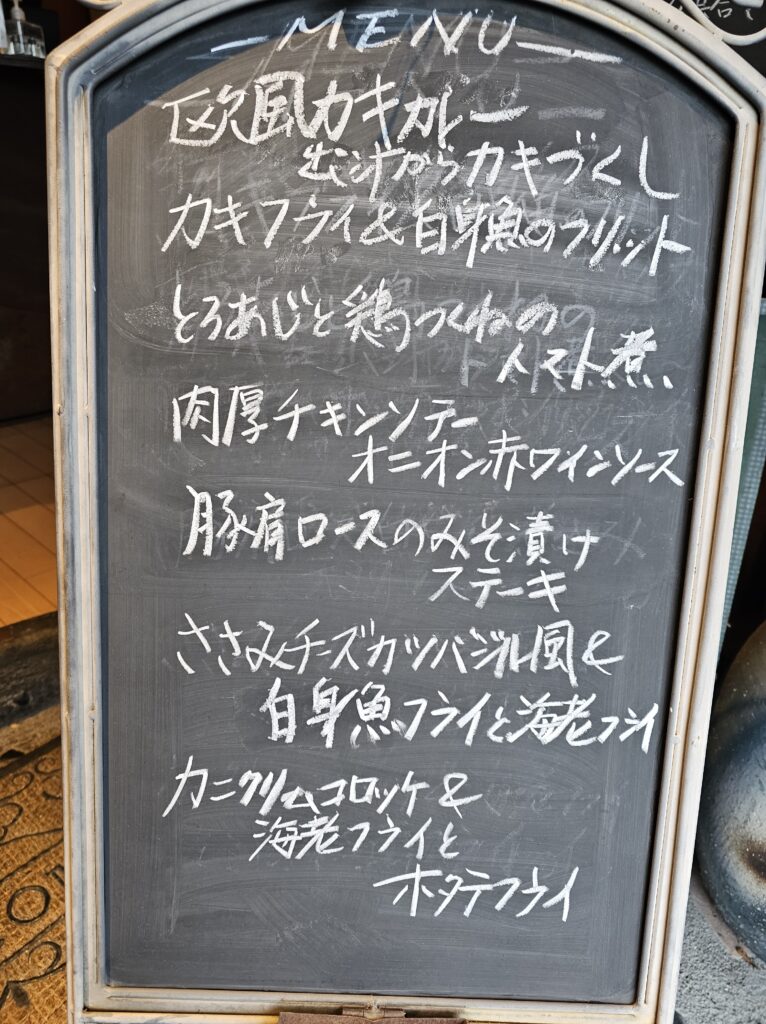 MENU
欧風カキカレー
出汁からカキづくし
カキフライ&白身魚のフリット
とろあじと鶏つくねの
トマト煮
肉厚チキンソテー
オニオン赤ワインソース
豚肩ロースのみそ漬け
ステーキ
ささみチーズカツバジル風&
白身魚フライと海老フライ
カニクリームコロッケ&
海老フライと
ホタテフライ